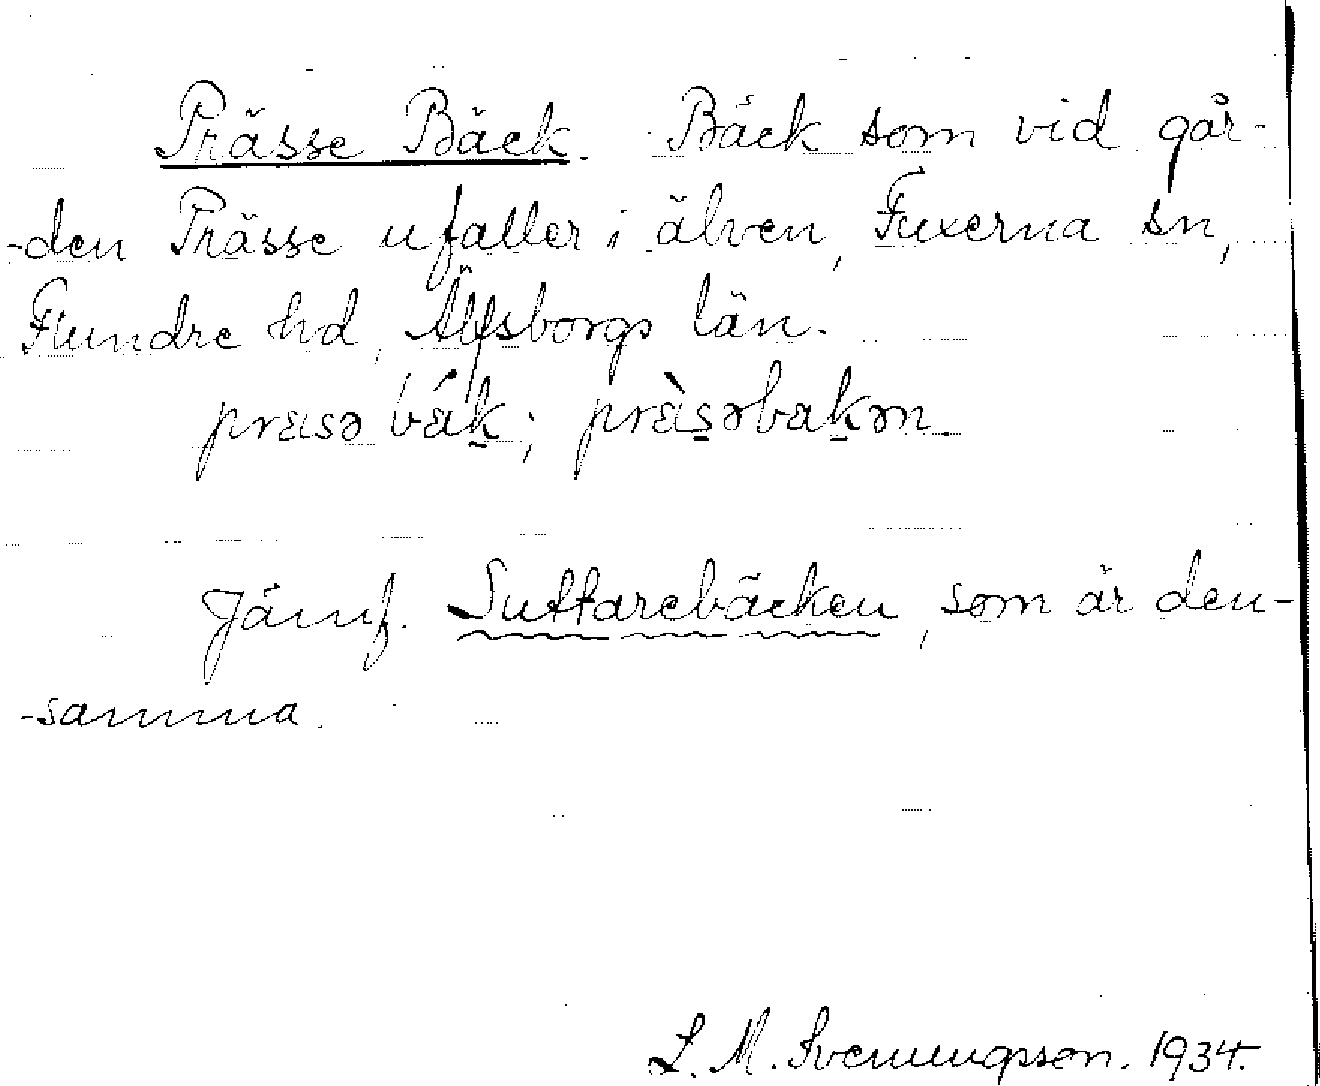 Prässe Bäck. Bäck som vid går-
-den Prässe ufaller i älven, Fuxerna sn,
Flundre hd, Älfsborgs län.
präsə bä́k; prä̀səbakən
Jämf. Suttarebäcken, som är den-
-samma.
L. M. Svenungsson. 1934.